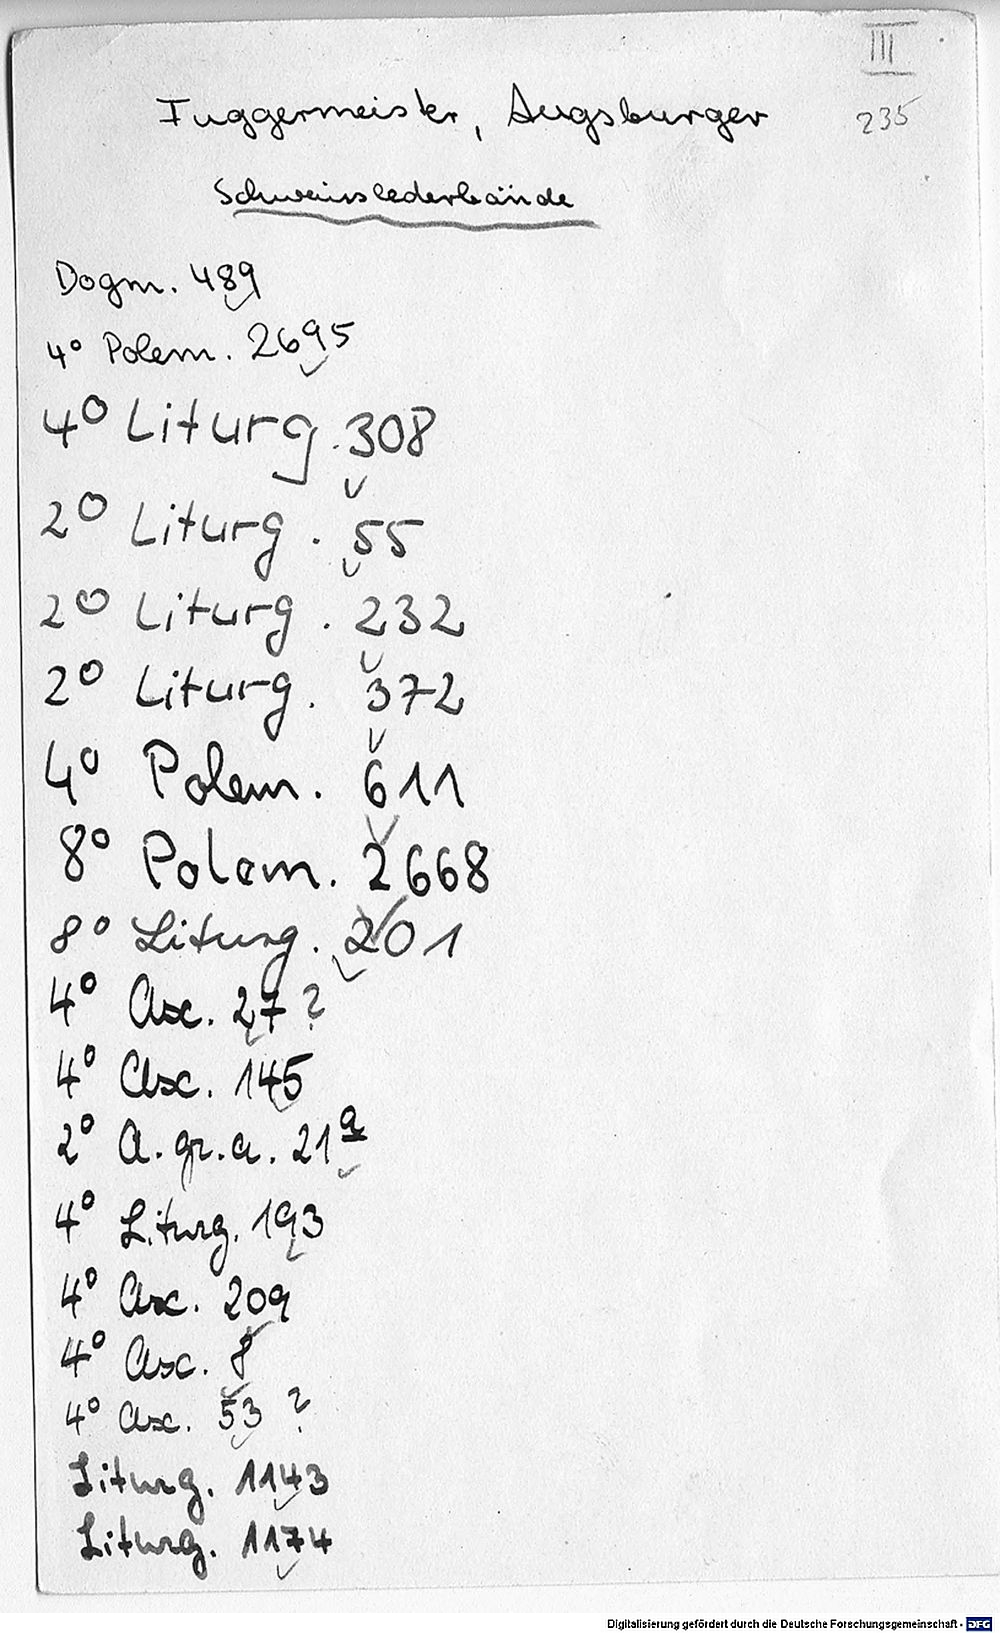 III
Fuggermeister, Augsburger
235
Schweinslederbände
Dogm. 489
4° Polem. 2695
4° Liturg. 308
2° Liturg. 55
2° Liturg. 232
2° Liturg. 372
4° Polem. 611
8° Polem. 2668
8° Liturg. 201
4° Asc. 27 ?
4° Asc. 145
2° A. gr. a. 21 a
4° Liturg. 193
4° Asc. 209
4° Asc. 8
4° Asc. 53 ?
Liturg. 1143
Liturg. 1174
Digitalisierung gefördert durch die Deutsche Forschungsgemeinschaft - DFG